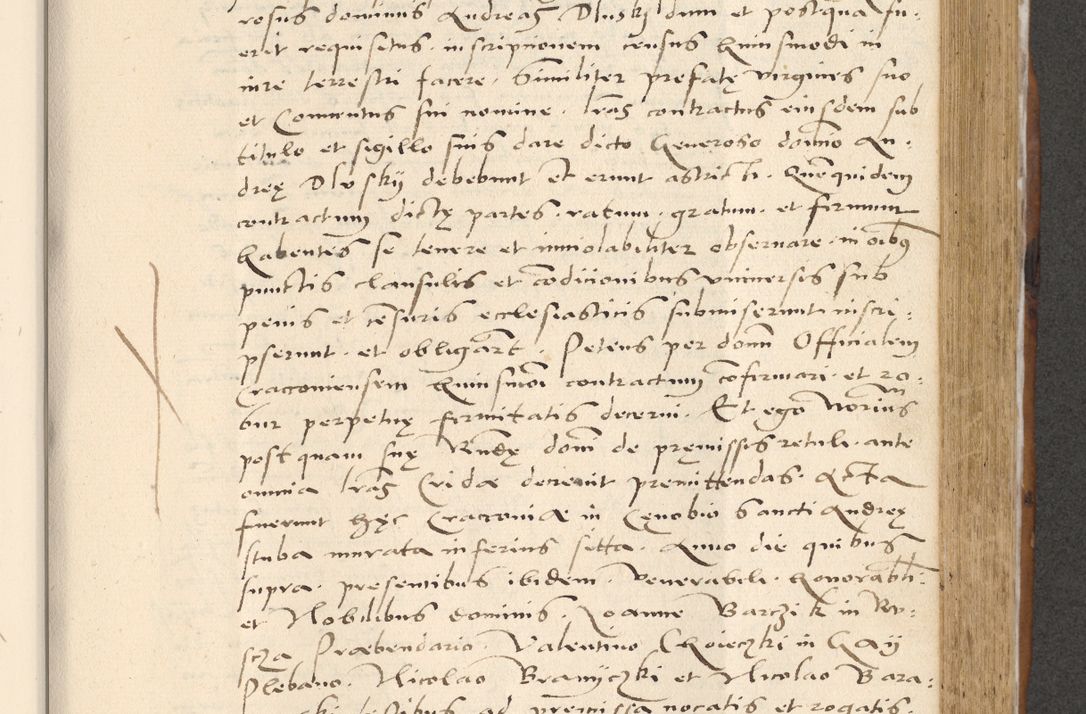 rosus dominus Andreas Dluski dum et postqua fu:
erit requisitus. inscriptionem census huiusmodi in
iure terrestri facere. Similiter prefatę virgines suo
et Conuentus sui nomine. lras contractus eiusdem sub
titulo et sigillo suis dare dicto Generoso domino An:
dreę Dluskij debebunt et erunt astricti. Quequidem
contractum dictę partes. ratum. gratum. et firmum
habentes se tenere et inuiolabiliter obseruare. in oibus
punctis clausulis et codicionibus vniuersis sub
penis et cesuris ecclesiasticis submiserunt inscri:
pserunt. et obligarat. Petens per domi Officialem
Cracouiensem huiusmoi contractum cofirmari. et ro:
bur perpetuę firmitatis decerni. Et ego Notarius
postquam suę Rndę domi de pręmissis retuli. ante
omnia lras Cridæ decreuit premittendas. Acta
fuerunt hęc Cracouiæ in Cęnobio Sancti Andreę
stuba murata inferius sitta. Anno die quibus
supra. presentibus ibidem. Venerabili. honorabili:
et Nobilibus dominis. Joanne Barczik in Ru:
scza Præbendario. Valentino Choieczki in Gay
Plebano. Nicolao Bramiczki et Nicolao Bara:
testibus ad premissa vocatis et rogatis.